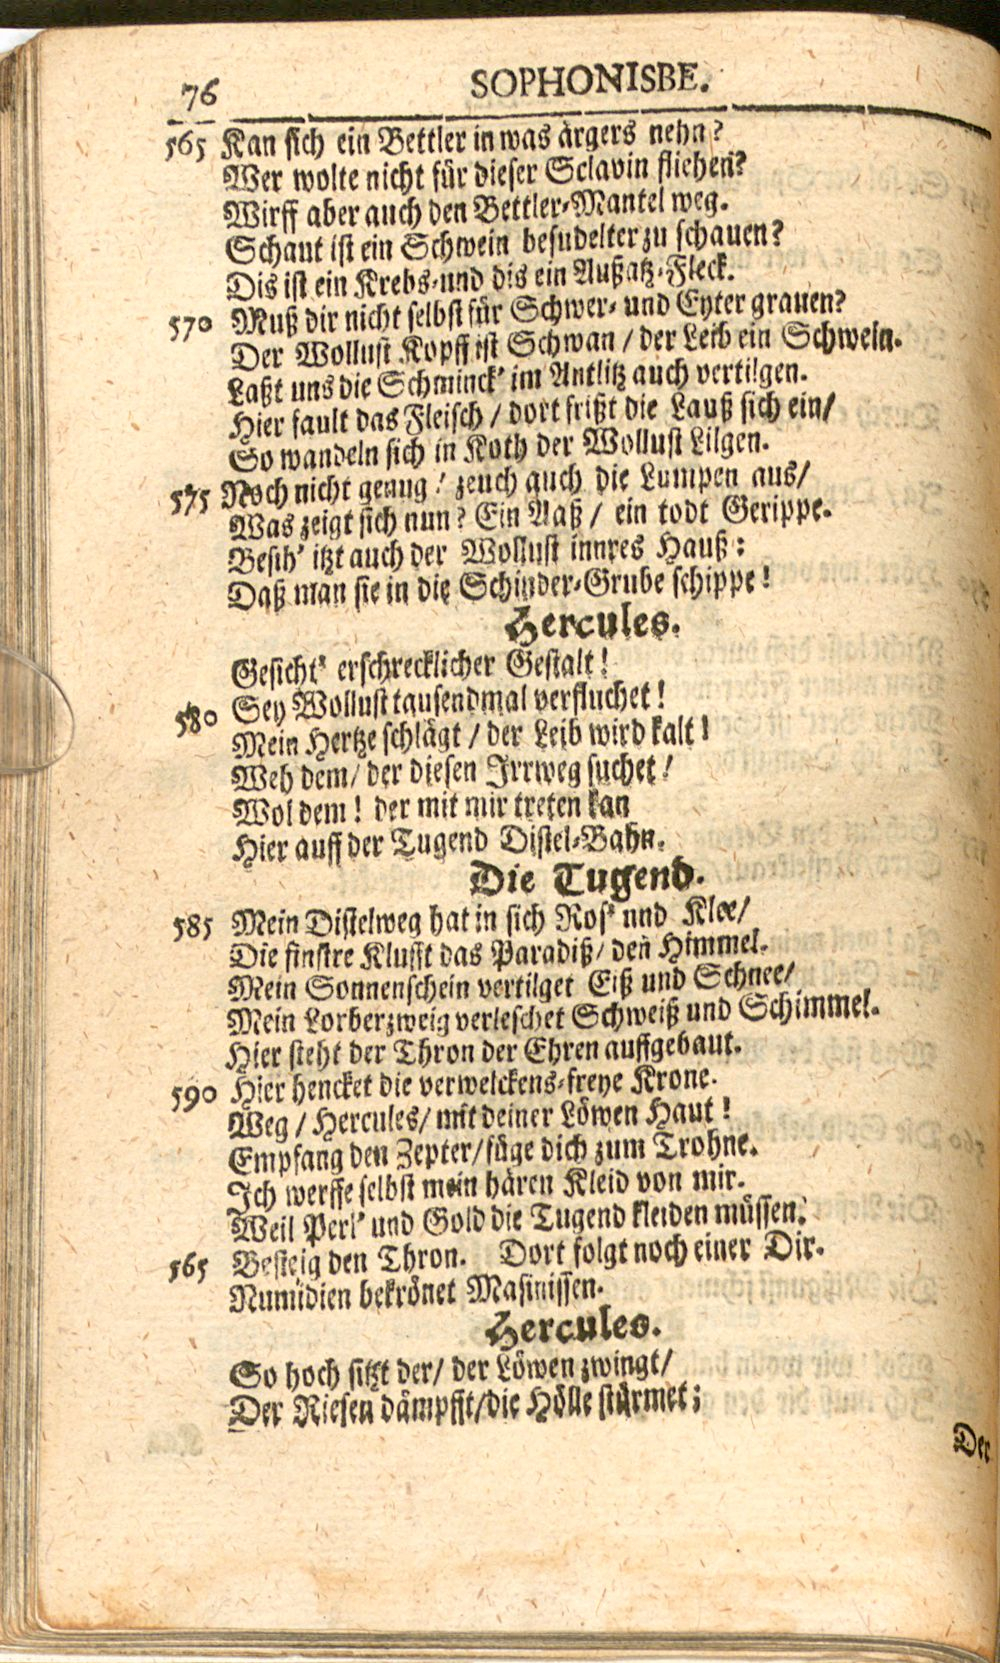 76 SOPHONISBE.
565 Kan sich ein Bettler in was ärgers nehn?
Wer wolte nicht für dieser Sclavin fliehen?
Wirff aber auch den Bettler-Mantel weg.
Schaut ist ein Schwein besudelter zu schauen?
Dis ist ein Krebs-und dis ein Außatz-Fleck.
570 Muß dir nicht selbst für Schwer- und Eyter grauen?
Der Wollust Kopff ist Schwan / der Leib ein Schwein.
Laßt uns die Schminck' im Antlitz auch vertilgen.
Hier fault das Fleisch / dort frißt die Lauß sich ein/
So wandeln sich in Koth der Wollust Lilgen.
575 Noch nicht genug! zeuch auch die Lumpen aus/
Was zeigt sich nun? Ein Aaß / ein todt Gerippe.
Besih' itzt auch der Wollust innres Hauß:
Daß man sie in die Schinder-Grube schippe!
Hercules.
Gesicht' erschrecklicher Gestalt!
580 Sey Wollust tausendmal verfluchet!
Mein Hertze schlägt / der Leib wird kalt!
Weh dem/ der diesen Irrweg suchet!
Wol dem! der mit mir treten kan
Hier auff der Tugend Distel-Bahn.
Die Tugend.
585 Mein Distelweg hat in sich Ros' und Klee/
Die finstre Klufft das Paradiß/ den Himmel.
Mein Sonnenschein vertilget Eiß und Schnee/
Mein Lorberzweig verleschet Schweiß und Schimmel.
Hier steht der Thron der Ehren auffgebaut.
590 Hier hencket die verwelckens-freye Krone.
Weg / Hercules/ mit deiner Löwen Haut!
Empfang den Zepter/füge dich zum Trohne.
Ich werffe selbst mein hären Kleid von mir.
Weil Perl' und Gold die Tugend kleiden müssen.
565 Besteig den Thron. Dort folgt noch einer Dir.
Numidien bekrönet Masinissen.
Hercules.
So hoch sitzt der/ der Löwen zwingt/
Der Riesen dämpfft/die Hölle stürmet;
Der